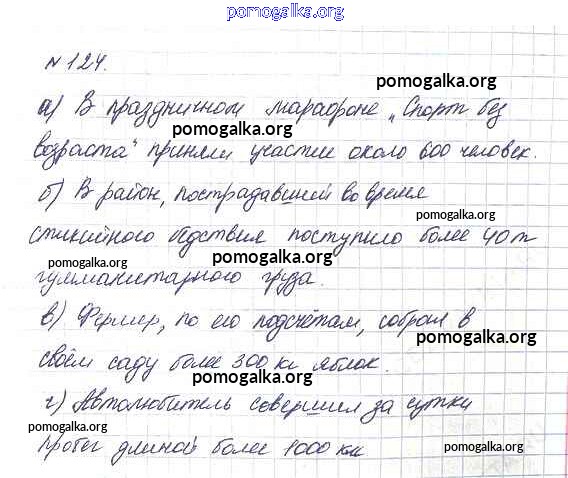 pomogalka.org
№124.
pomogalka.org
а) В праздничном марафоне „Спорт без
pomogalka.org
возраста“ приняли участие около 600 человек.
б) В район, пострадавший во время
pomogalka.org
стихийного бедствия поступило более 40 т
pomogalka.org
pomogalka.org
гумманитарного груза.
в) Фермер, по его подсчётам, собрал в
pomogalka.org
своём саду более 300 кг яблок.
pomogalka.org
г) Автолюбитель совершил за сутки
pomogalka.org
пробег длиной более 1000 км
pomogalka.org
pomogalka.org